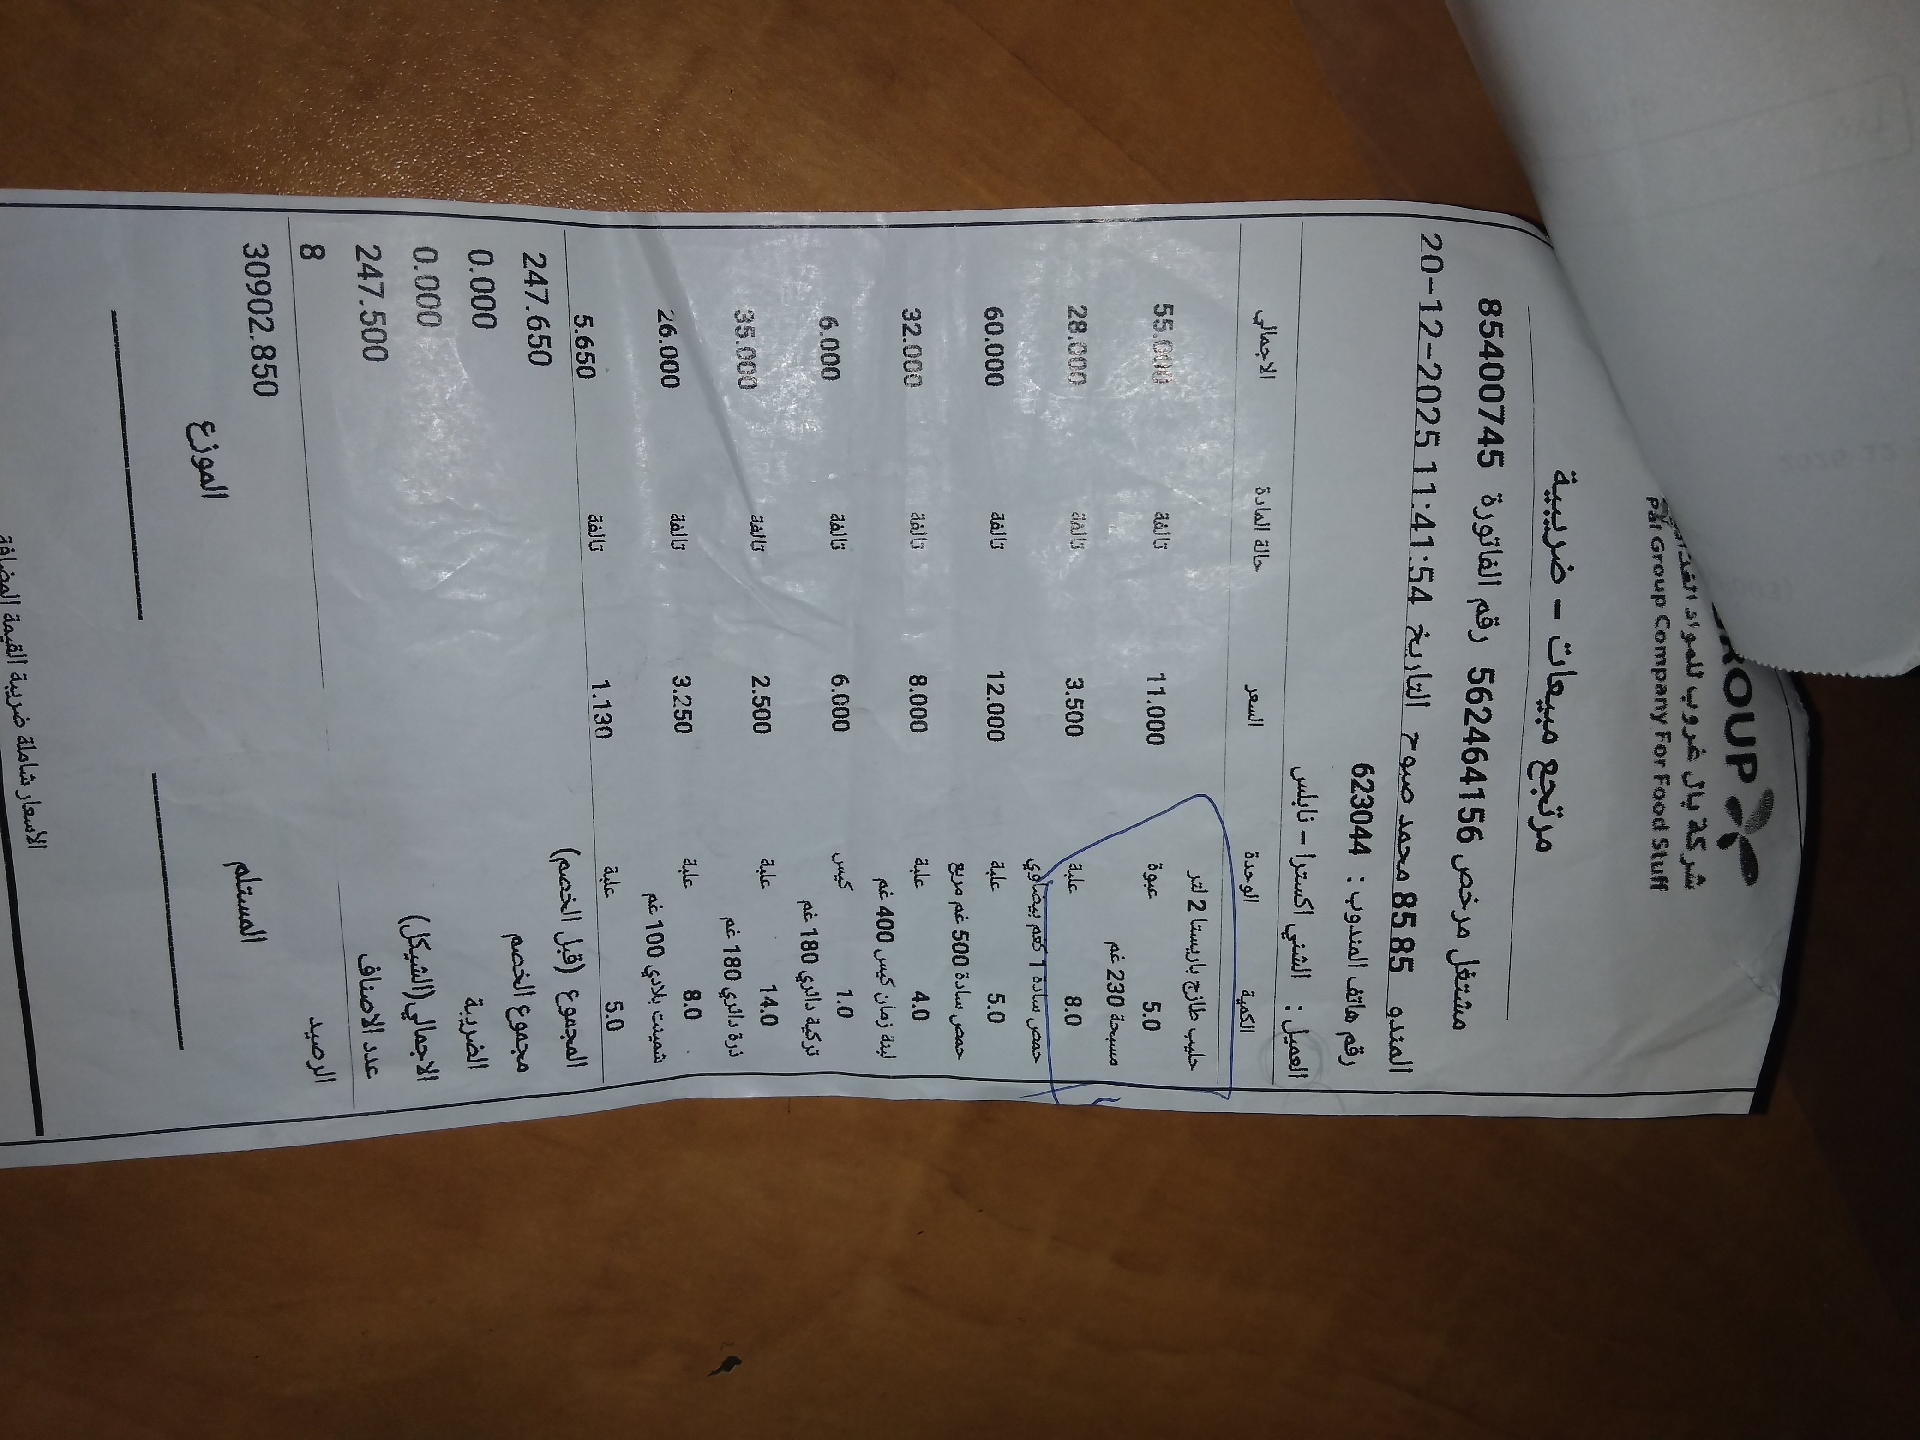 ROUP
شركة بال غروب للمواد
Pal Group Company For Food Stuff
مرتجع مبيعات - ضريبية
مشتغل مرخص 562464156 رقم الفاتورة 85400745
المندو 8585 محمد صبوح التاريخ 20-12-2025 11:41:54
رقم هاتف المندوب : 623044
العميل : الشني اكسترا - نابلس
الكمية الوحدة السعر حالة المادة الاجمالي
حليب طازج باريستا 2 لتر
5.0 عبوة 11.000 تالفة 55.000
مسبحة 230 غم
8.0 علبة 3.500 تالفة 28.000
حمص سادة 1 كغم بيضاوي
5.0 علبة 12.000 تالفة 60.000
حمص سادة 500 غم مربع
4.0 علبة 8.000 تالفة 32.000
لبنة زمان كيس 400 غم
1.0 كيس 6.000 تالفة 6.000
تركية دائري 180 غم
14.0 علبة 2.500 تالفة 35.000
ذرة دائري 180 غم
8.0 علبة 3.250 تالفة 26.000
شمينت بلادي 100 غم
5.0 علبة 1.130 تالفة 5.650
المجموع (قبل الخصم) 247.650
مجموع الخصم 0.000
الضريبة 0.000
الاجمالي (الشيكل) 247.500
عدد الاصناف 8
الرصيد 30902.850
المستلم الموزع
الاسعار شاملة ضريبة القيمة المضافة